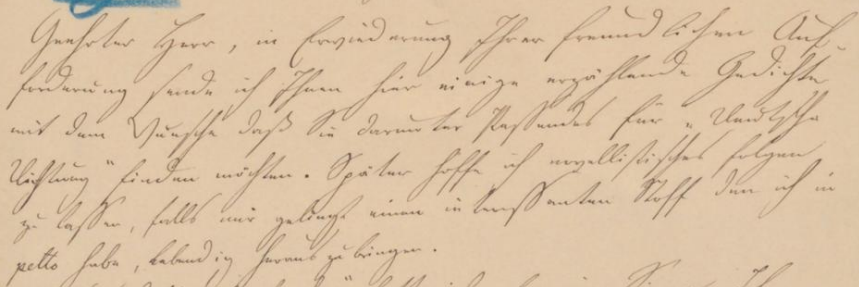 Geehrter Herr, in Erwiederung Ihrer freundlichen Auf-
forderung sende ich Ihnen hier einige erzählende Gedichte
mit dem Wunsche daß Sie darunter Passendes für „Deutsche
Dichtung" finden möchten. Später hoffe ich novellistisches folgen
zu lassen, falls mir gelingt einen interessanten Stoff den ich in
petto habe, lebendig herauszubringen.